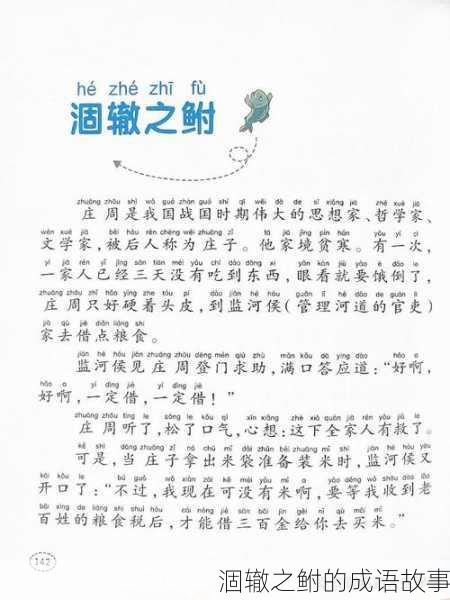 hé zhé zhī fù
涸辙之鲋
zhuāng zhōu shì wǒ guó zhàn guó shí qī wěi dà de sī xiǎng jiā zhé xué jiā
庄周是我国战国时期伟大的思想家、哲学家、
wén xué jiā bèi hòu rén chēng wéi zhuāng zǐ tā jiā jìng pín hán yǒu yí cì
文学家,被后人称为庄子。他家境贫寒。有一次,
yì jiā rén yǐ jīng sān tiān méi yǒu chī dào dōng xi yǎn kàn jiù yào è dǎo le
一家人已经三天没有吃到东西,眼看就要饿倒了,
zhuāng zhōu zhǐ hǎo yìng zhe tóu pí dào jiān hé hóu guǎn lǐ hé dào de guān lì
庄周只好硬着头皮,到监河侯(管理河道的官吏)
jiā qù jiè diǎn liáng shi
家去借点粮食。
jiān hé hóu jiàn zhuāng zhōu dēng mén qiú zhù mǎn kǒu dā ying dào hǎo a
监河侯见庄周登门求助,满口答应道:“好啊,
hǎo a yí dìng jiè yí dìng jiè
好啊,一定借,一定借!”
zhuāng zhōu tīng le sōng le kǒu qì xīn xiǎng zhè xià quán jiā rén yǒu jiù le
庄周听了,松了口气,心想:这下全家人有救了。
kě shì dāng zhuāng zǐ ná chū mǐ dài zhǔn bèi zhuāng mǐ shí jiān hé hóu yòu
可是,当庄子拿出米袋准备装米时,监河侯又
kāi kǒu le bú guò wǒ xiàn zài kě méi yǒu mǐ a yào děng wǒ shōu dào lǎo
开口了:“不过,我现在可没有米啊,要等我收到老
bǎi xìng de liáng shi shuì hòu cái néng jiè sān bǎi jīn gěi nǐ qù mǎi mǐ
百姓的粮食税后,才能借三百金给你去买米。”
142
涸辙之鲋的成语故事